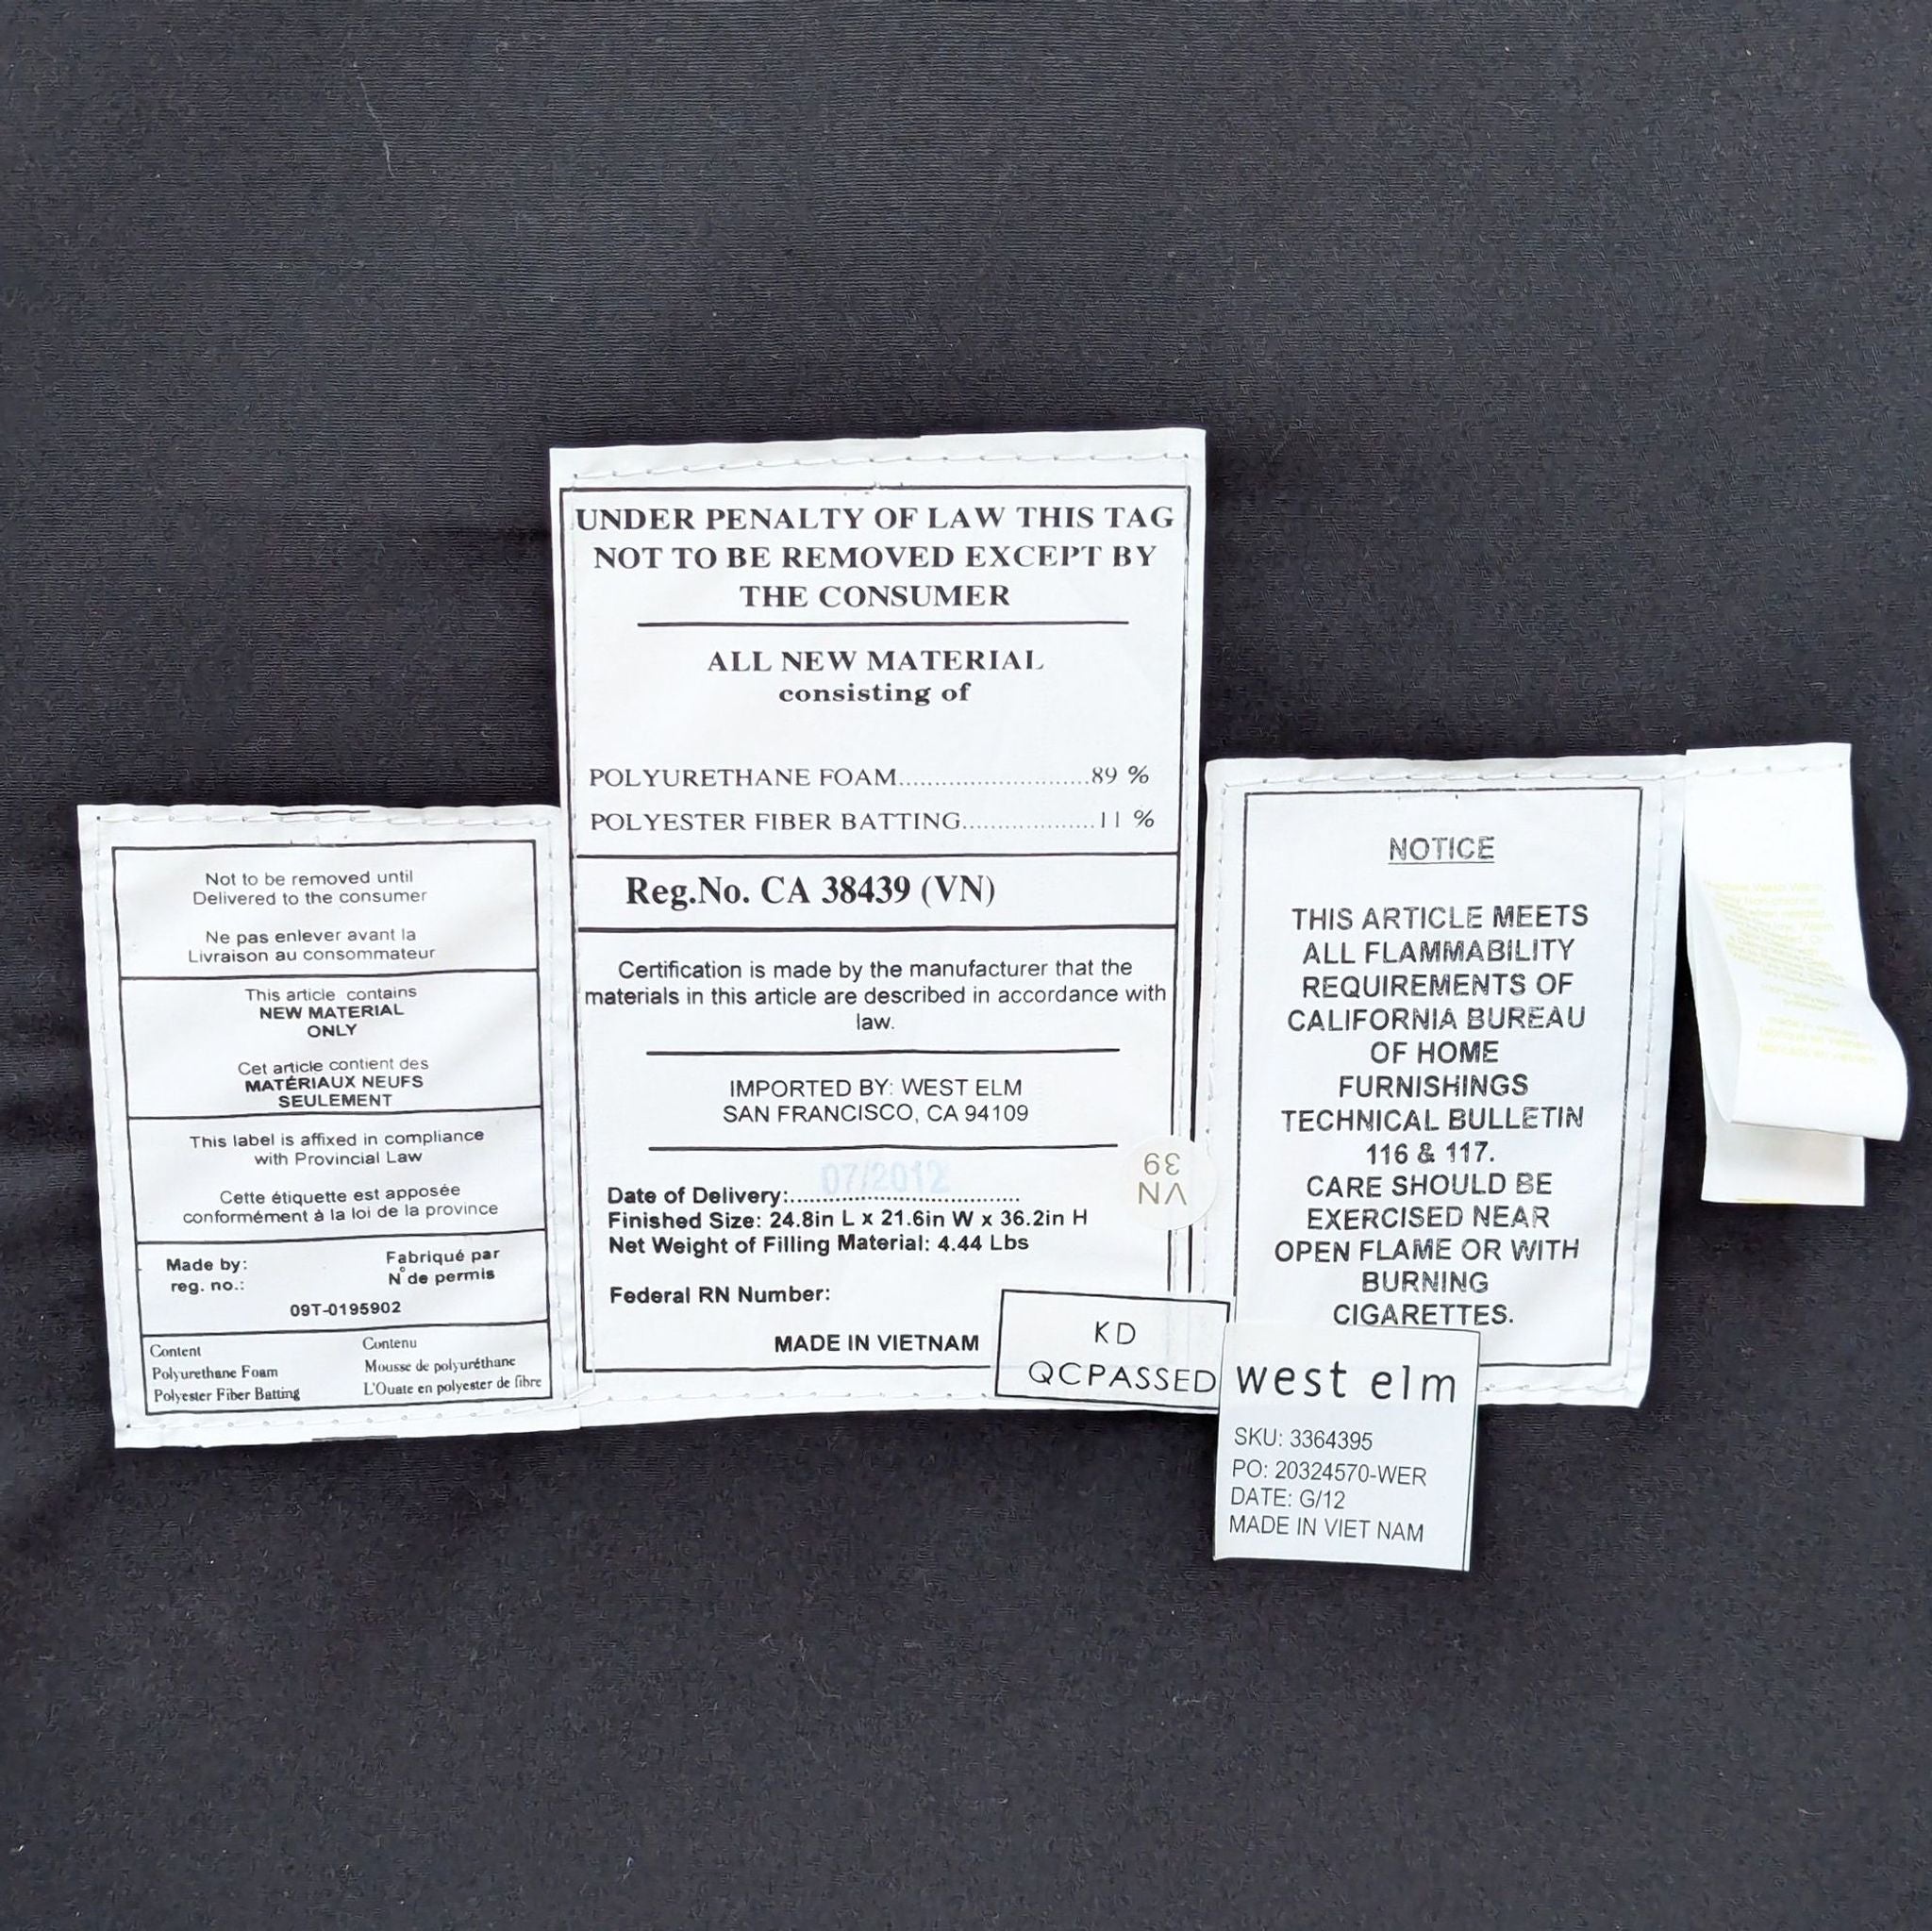 Not to be removed until
Delivered to the consumer
Ne pas enlever avant la
Livraison au consommateur
This article contains
NEW MATERIAL
ONLY
Cet article contient des
MATÉRIAUX NEUFS
SEULEMENT
This label is affixed in compliance
with Provincial Law
Cette étiquette est apposée
conformément à la loi de la province
Made by: Fabriqué par
reg. no.: N° de permis
09T-0195902
Content Contenu
Polyurethane Foam Mousse de polyuréthane
Polyester Fiber Batting L'Ouate en polyester de fibre
UNDER PENALTY OF LAW THIS TAG
NOT TO BE REMOVED EXCEPT BY
THE CONSUMER
ALL NEW MATERIAL
consisting of
POLYURETHANE FOAM..........................89 %
POLYESTER FIBER BATTING...................11 %
Reg.No. CA 38439 (VN)
Certification is made by the manufacturer that the
materials in this article are described in accordance with
law.
IMPORTED BY: WEST ELM
SAN FRANCISCO, CA 94109
Date of Delivery:....07/2012....
Finished Size: 24.8in L x 21.6in W x 36.2in H
Net Weight of Filling Material: 4.44 Lbs
Federal RN Number:
MADE IN VIETNAM
VN
39
KD
QCPASSED
NOTICE
THIS ARTICLE MEETS
ALL FLAMMABILITY
REQUIREMENTS OF
CALIFORNIA BUREAU
OF HOME
FURNISHINGS
TECHNICAL BULLETIN
116 & 117.
CARE SHOULD BE
EXERCISED NEAR
OPEN FLAME OR WITH
BURNING
CIGARETTES.
west elm
SKU: 3364395
PO: 20324570-WER
DATE: G/12
MADE IN VIET NAM